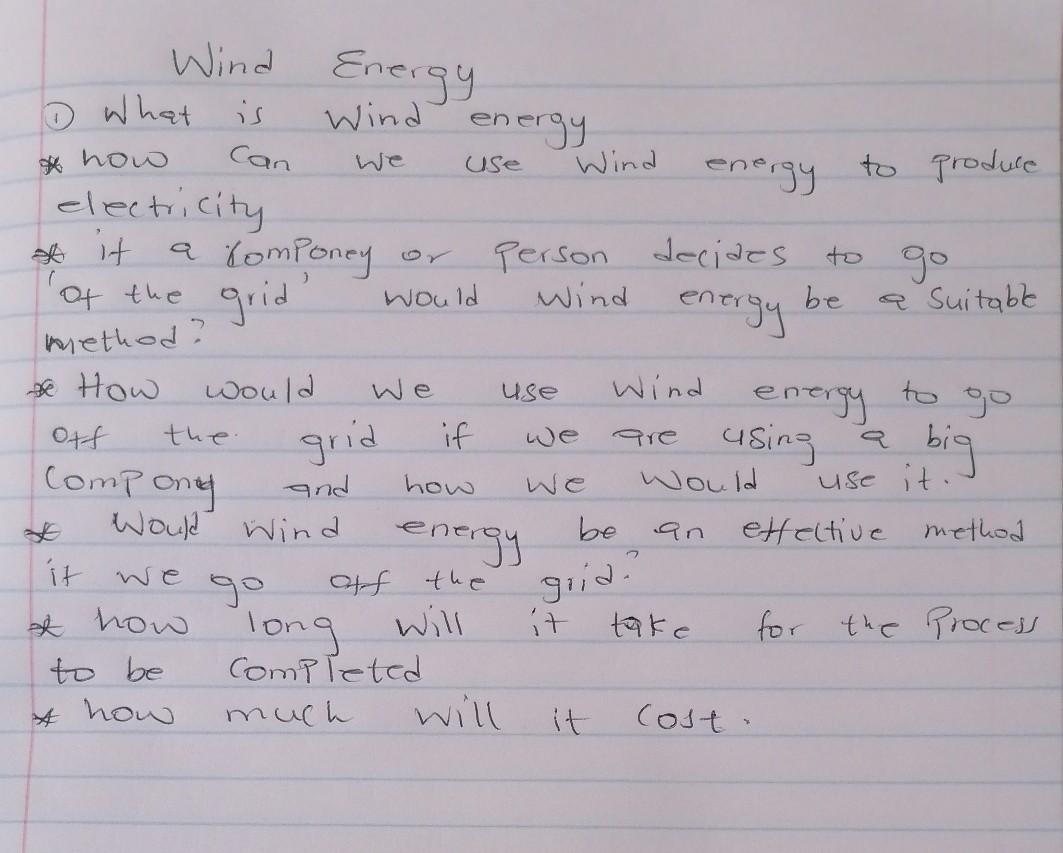 Wind Energy
① What is Wind energy
* how can we use wind energy to produce
electricity
* if a componey or person decides to go
'of the grid' would wind energy be a suitable
method?
* How would we use wind energy to go
off the grid if we are using a big
company and how we would use it.
* Would wind energy be an effective method
if we go off the grid?
* how long will it take for the process
to be completed
* how much will it cost.